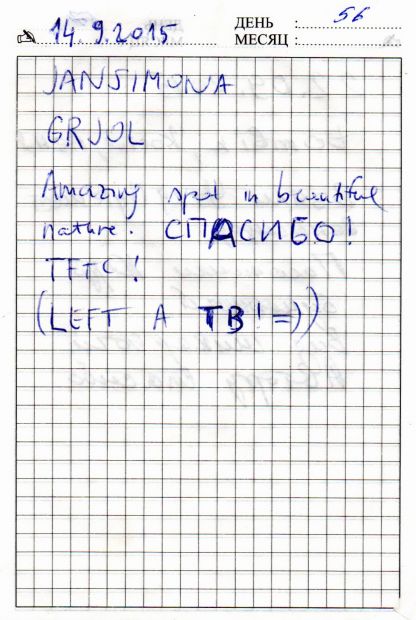 14.9.2015 ДЕНЬ : 56
МЕСЯЦ :
JANSIMONA
GRJOL
Amazing spot in beautiful
nature. СПАСИБО!
TFTC!
(LEFT A TB! =))